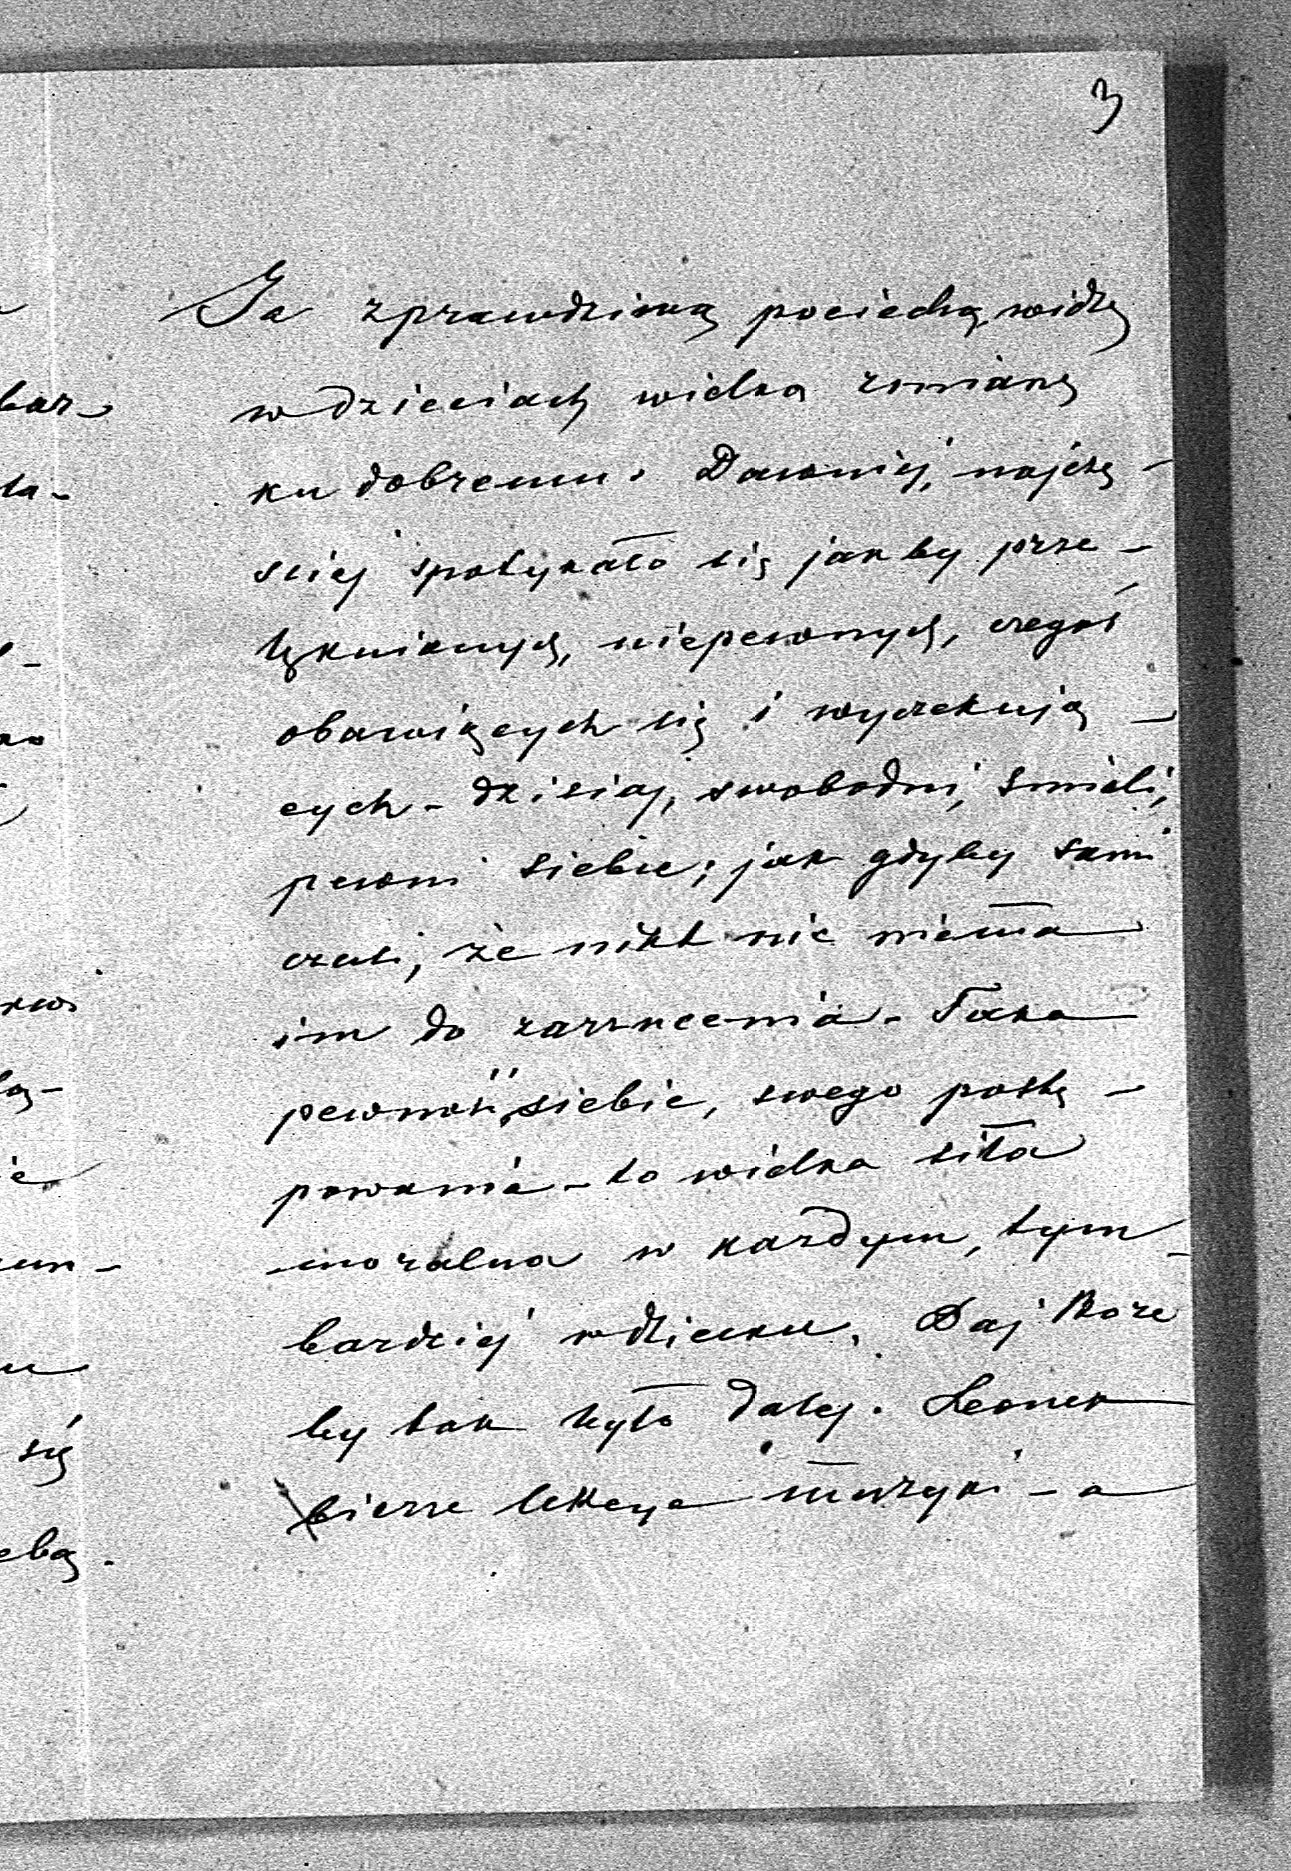 3
Ja z prawdziwą pociechą widzę
w dzieciach wielką zmianę
ku dobremu. Dawniej, najczę-
ściej spotykało się jakby prze-
lęknionych, niepewnych, czegoś
obawiących się i wyczekują-
cych - dzisiaj, swobodni, śmieli,
pewni siebie; jak gdyby sami
czuli, że nikt nic niema
im do zarzucenia. Taka
pewność siebie, swego postę-
powania - to wielka siła
moralna w każdym, tym-
bardziej w dziecku. Daj Boże
by tak było dalej. Leonek
bierze lekcye muzyki - a
bar-
ła-
się
ebą.